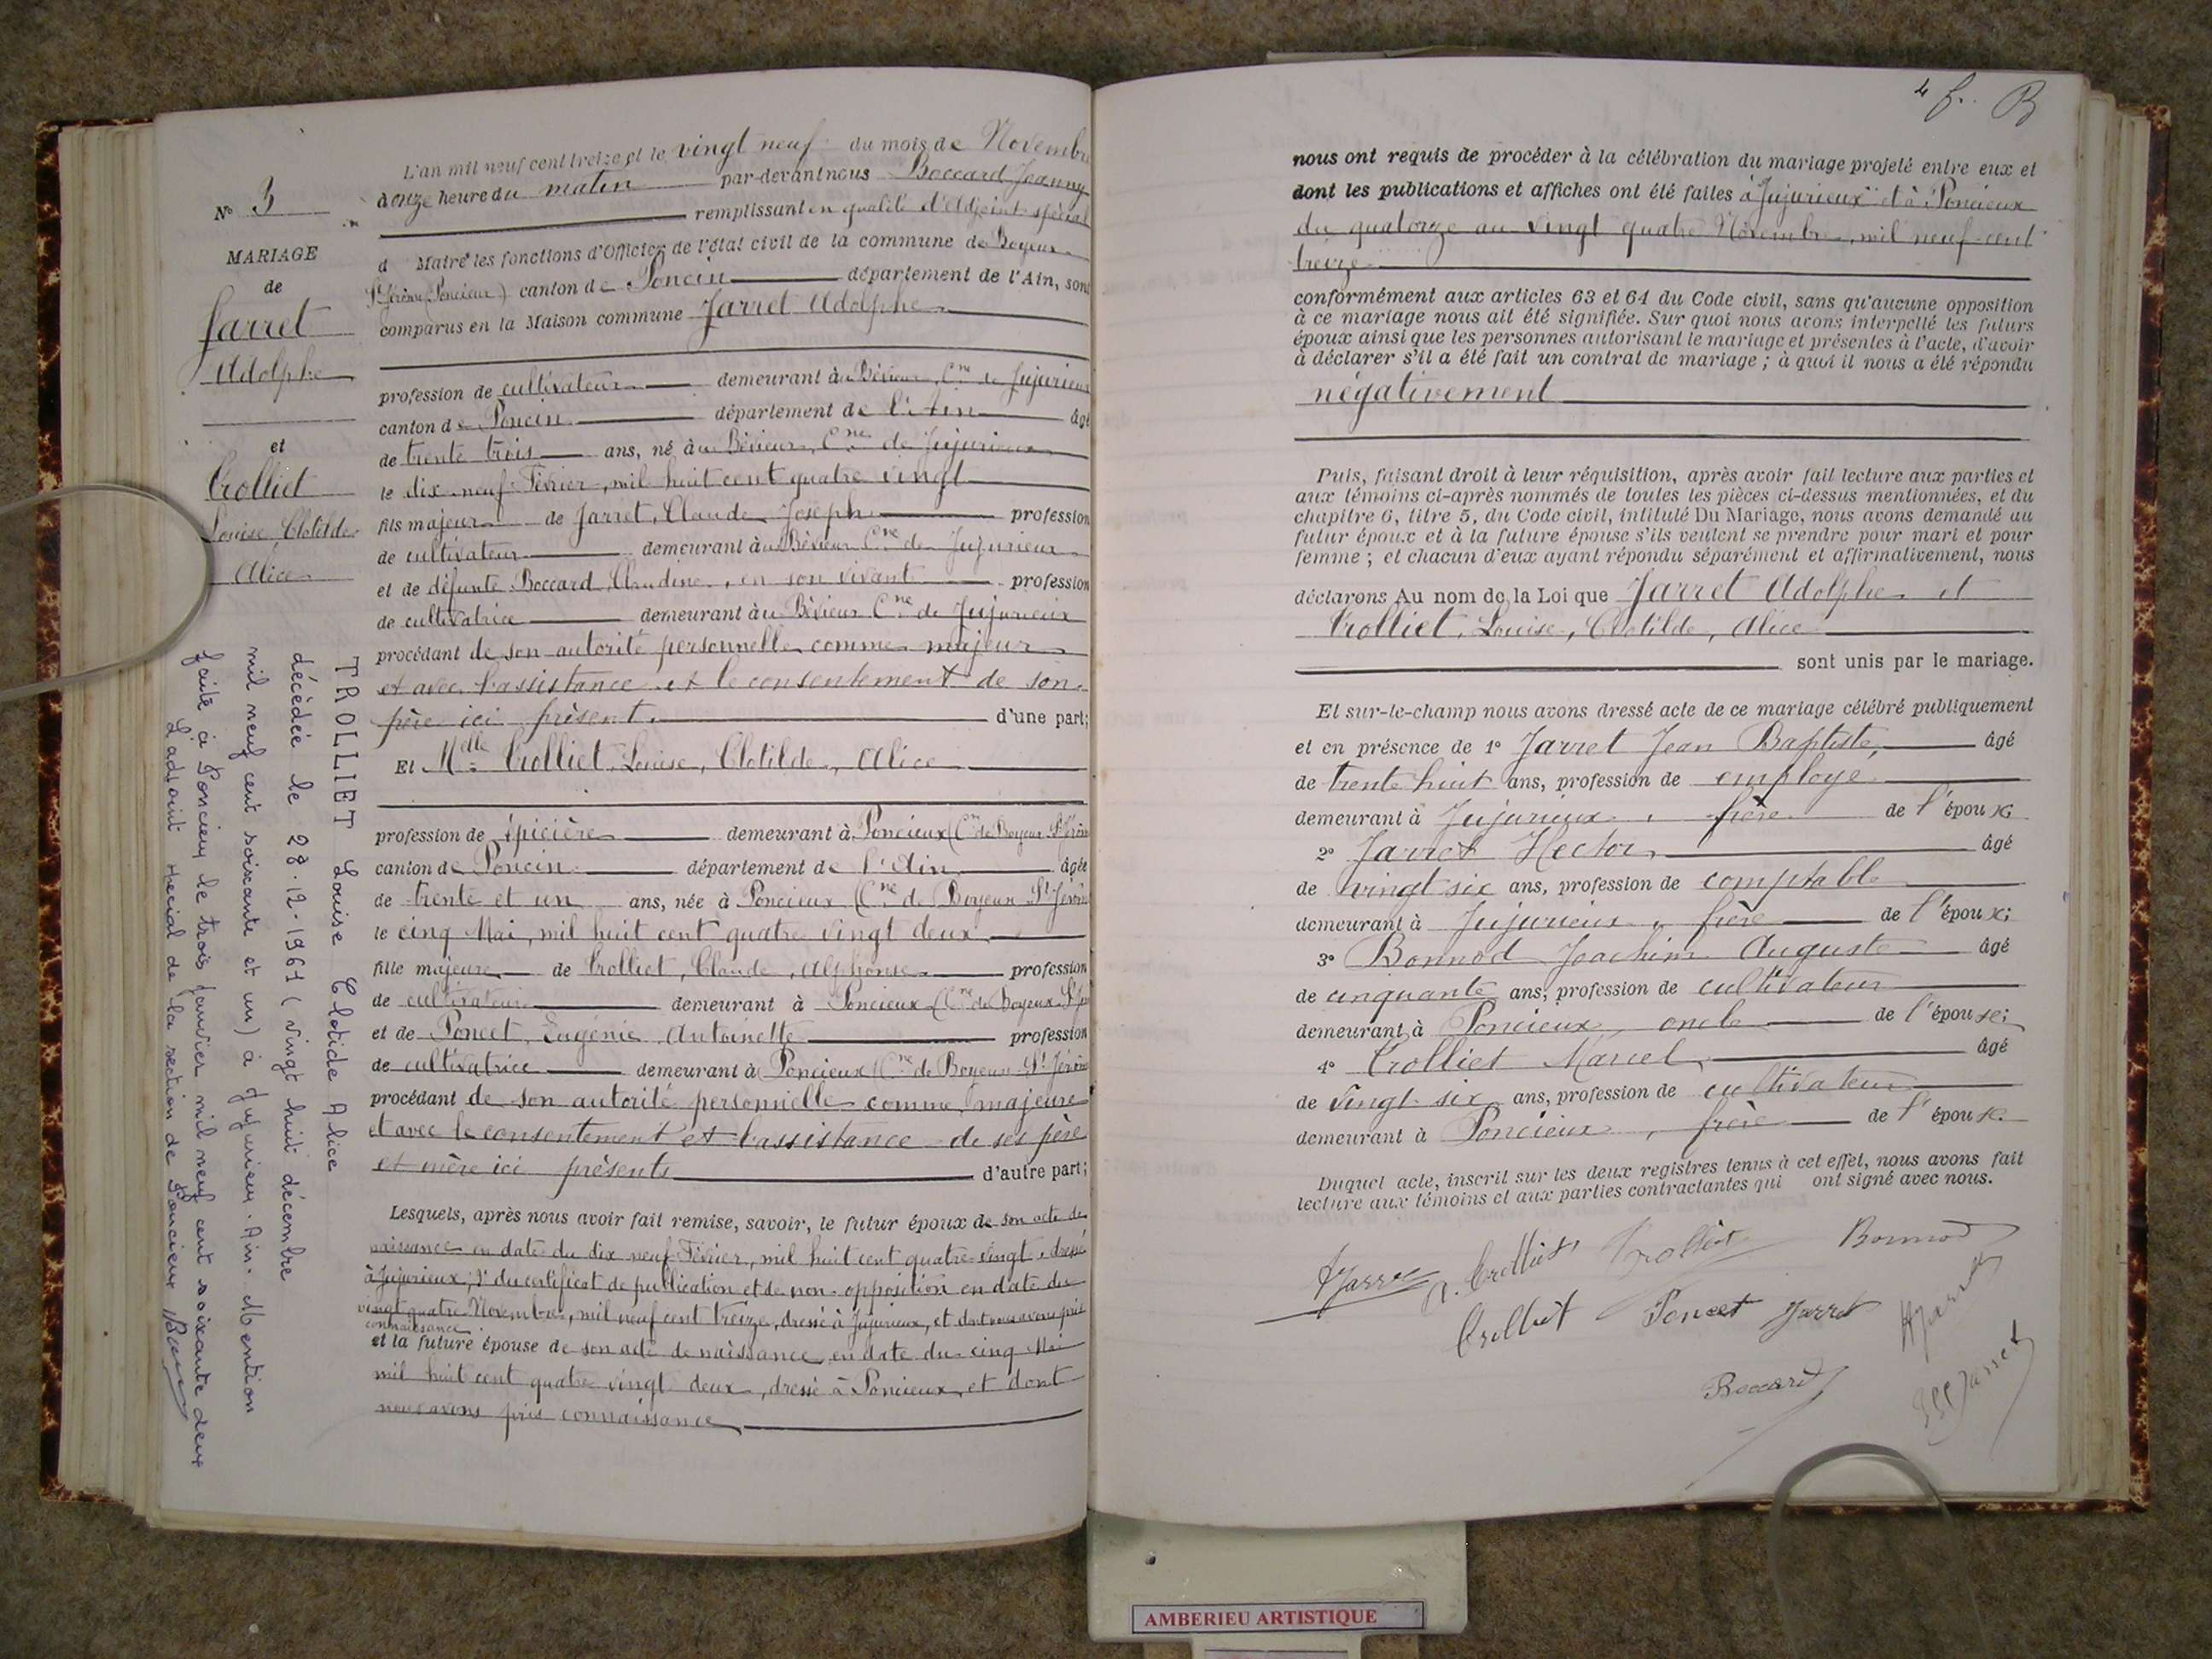 N° 3
MARIAGE
de
Jarret
Adolphe
et
Trolliet
Louise Clotilde
Alice
TROLLIET Louise Clotilde Alice
décédée le 28.12.1961 (vingt huit décembre
mil neuf cent soixante et un) à Jujurieux. Ain. Mention
faite à Poncieux le trois janvier mil neuf cent soixante deux
L'adjoint spécial de la section de Poncieux
L'an mil neuf cent treize et le vingt neuf du mois de Novembre
à onze heure du matin par-devant nous Boccard Joanny
remplissant en qualité d'Adjoint spécial
d Maire les fonctions d'Officier de l'état civil de la commune de Boyeux
St Jérôme (Poncieux) canton de Poncin département de l'Ain, sont
comparus en la Maison commune Jarret Adolphe
profession de cultivateur demeurant à au Bévieux, Cne de Jujurieux
canton de Poncin département de l'Ain âgé
de trente trois ans, né à au Bévieux, Cne de Jujurieux
le dix-neuf Février, mil huit cent quatre vingt
fils majeur de Jarret, Claude Joseph profession
de cultivateur demeurant à au Bévieux Cne de Jujurieux
et de défunte Boccard Claudine, en son vivant profession
de cultivatrice demeurant à au Bévieux Cne de Jujurieux
procédant de son autorité personnelle comme majeur
et avec l'assistance et le consentement de son
père ici présent. d'une part;
Et Mdlle Trolliet, Louise, Clotilde, Alice
profession de épicière demeurant à Poncieux (Cne de Boyeux St Jérôme
canton de Poncin département de l'Ain âgée
de trente et un ans, née à Poncieux (Cne de Boyeux St Jérôme
le cinq Mai, mil huit cent quatre vingt deux
fille majeure de Trolliet, Claude, Alphonse profession
de cultivateur demeurant à Poncieux (Cne de Boyeux
et de Poncet Eugénie Antoinette profession
de cultivatrice demeurant à Poncieux (Cne de Boyeux St Jérôme
procédant de son autorité personnelle comme majeure
et avec le consentement et l'assistance de ses père
et mère ici présents d'autre part;
Lesquels, après nous avoir fait remise, savoir, le futur époux de son acte de
naissance en date du dix neuf Février, mil huit cent quatre-vingt, dressé
à Jujurieux; du certificat de publication et de non-opposition en date du
vingt quatre Novembre, mil neuf cent treize, dressé à Jujurieux, et dont nous avons pris
connaissance
et la future épouse de son acte de naissance en date du cinq Mai
mil huit cent quatre vingt deux, dressé à Poncieux, et dont
nous avons pris connaissance
4 f. B
nous ont requis de procéder à la célébration du mariage projeté entre eux et
dont les publications et affiches ont été faites à Jujurieux et à Poncieux
du quatorze au vingt quatre Novembre, mil neuf cent
treize
conformément aux articles 63 et 64 du Code civil, sans qu'aucune opposition
à ce mariage nous ait été signifiée. Sur quoi nous avons interpellé les futurs
époux ainsi que les personnes autorisant le mariage et présentes à l'acte, d'avoir
à déclarer s'il a été fait un contrat de mariage; à quoi il nous a été répondu
négativement
Puis, faisant droit à leur réquisition, après avoir fait lecture aux parties et
aux témoins ci-après nommés de toutes les pièces ci-dessus mentionnées, et du
chapitre 6, titre 5, du Code civil, intitulé Du Mariage, nous avons demandé au
futur époux et à la future épouse s'ils veulent se prendre pour mari et pour
femme; et chacun d'eux ayant répondu séparément et affirmativement, nous
déclarons Au nom de la Loi que Jarret Adolphe et
Trolliet, Louise, Clotilde, Alice
sont unis par le mariage.
Et sur-le-champ nous avons dressé acte de ce mariage célébré publiquement
et en présence de 1° Jarret Jean Baptiste, âgé
de trente huit ans, profession de employé
demeurant à Jujurieux, frère de l'époux
2° Jarret Hector, âgé
de vingt six ans, profession de comptable
demeurant à Jujurieux, frère de l'époux;
3° Bonnod Joachim Auguste âgé
de cinquante ans, profession de cultivateur
demeurant à Poncieux, oncle de l'épouse;
4° Trolliet Marcel, âgé
de vingt-six ans, profession de cultivateur
demeurant à Poncieux, frère de l'épouse.
Duquel acte, inscrit sur les deux registres tenus à cet effet, nous avons fait
lecture aux témoins et aux parties contractantes qui ont signé avec nous.
AJarret A. Trolliet Trolliet Bonnod
Trolliet Poncet Jarret HJarret
Boccard Jarret
AMBERIEU ARTISTIQUE